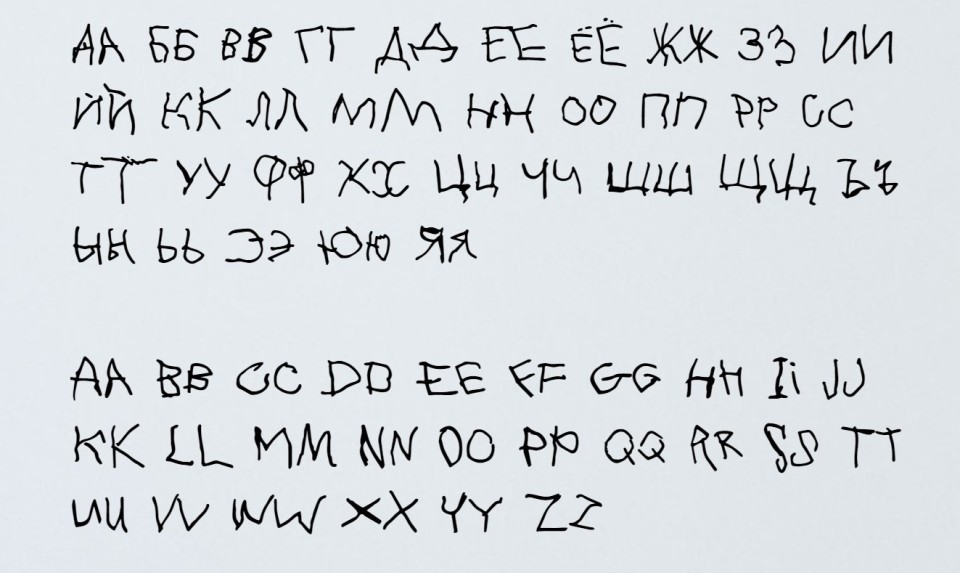 АА ББ ВВ ГГ ДД ЕЕ ЁЁ ЖЖ ЗЗ ИИ
ЙЙ КК ЛЛ ММ НН ОО ПП РР СС
ТТ УУ ФФ ХХ ЦЦ ЧЧ ШШ ЩЩ ЪЪ
ЫЫ ЬЬ ЭЭ ЮЮ ЯЯ
AA BB CC DD EE FF GG HH Ii JJ
KK LL MM NN OO PP QQ RR SS TT
UU VV WW XX YY ZZ